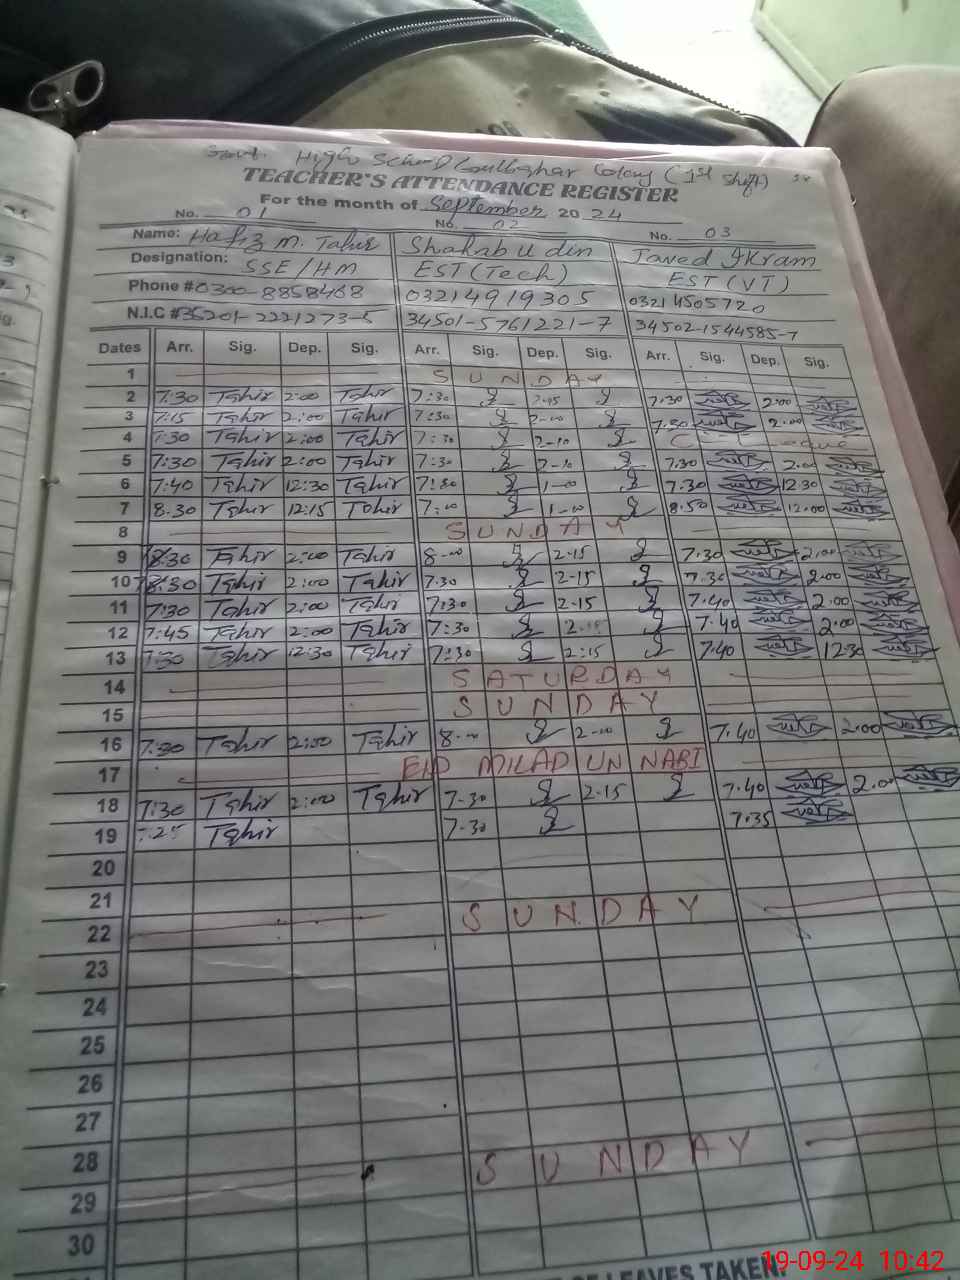 Govt. High School Gulbahar Colony (1st Shift)
TEACHER'S ATTENDANCE REGISTER
For the month of September 2024
No. 01 No. 02 No. 03
Name: Hafiz M. Tahir Shahab U din Javed Ikram
Designation: SSE/HM EST (Tech) EST (VT)
Phone # 0300-8858468 03214919305 03214505720
N.I.C # 35201-2221273-5 34501-5761221-7 34502-1544585-7
Dates Arr. Sig. Dep. Sig. Arr. Sig. Dep. Sig. Arr. Sig. Dep. Sig.
1 SUNDAY
2 7:30 Tahir 2:00 Tahir 7:30 7.30 2.00
3 7:15 Tahir 2:00 Tahir 7:30 2-00 7.30 2.00
4 7:30 Tahir 2:00 Tahir 7:30 2-10 C
5 7:30 Tahir 2:00 Tahir 7:30 2-10 7.30 2.00
6 7:40 Tahir 12:30 Tahir 7:30 1-00 7.30 12.30
7 8.30 Tahir 12:15 Tahir 7:00 1-00 8.50 12.00
8 SUNDAY
9 8:30 Tahir 2:00 Tahir 8-00 2-15 7.30 2.00
10 8:30 Tahir 2:00 Tahir 7:30 2-15 7.30 2.00
11 7:30 Tahir 2:00 Tahir 7:30 2-15 7.40 2.00
12 7:45 Tahir 2:00 Tahir 7:30 7.40 2.00
13 7:30 Tahir 12:30 Tahir 7:30 2:15 7.40 12.30
14 SATURDAY
15 SUNDAY
16 7:30 Tahir 2:00 Tahir 8-00 2-00 7.40 2.00
17 EID MILAD UN NABI
18 7:30 Tahir 2:00 Tahir 7-30 2-15 7.40 2.00
19 7:25 Tahir 7-30 7.35
20
21
22 SUNDAY
23
24
25
26
27
28 SUNDAY
29
30
LEAVES TAKEN.
19-09-24 10:42